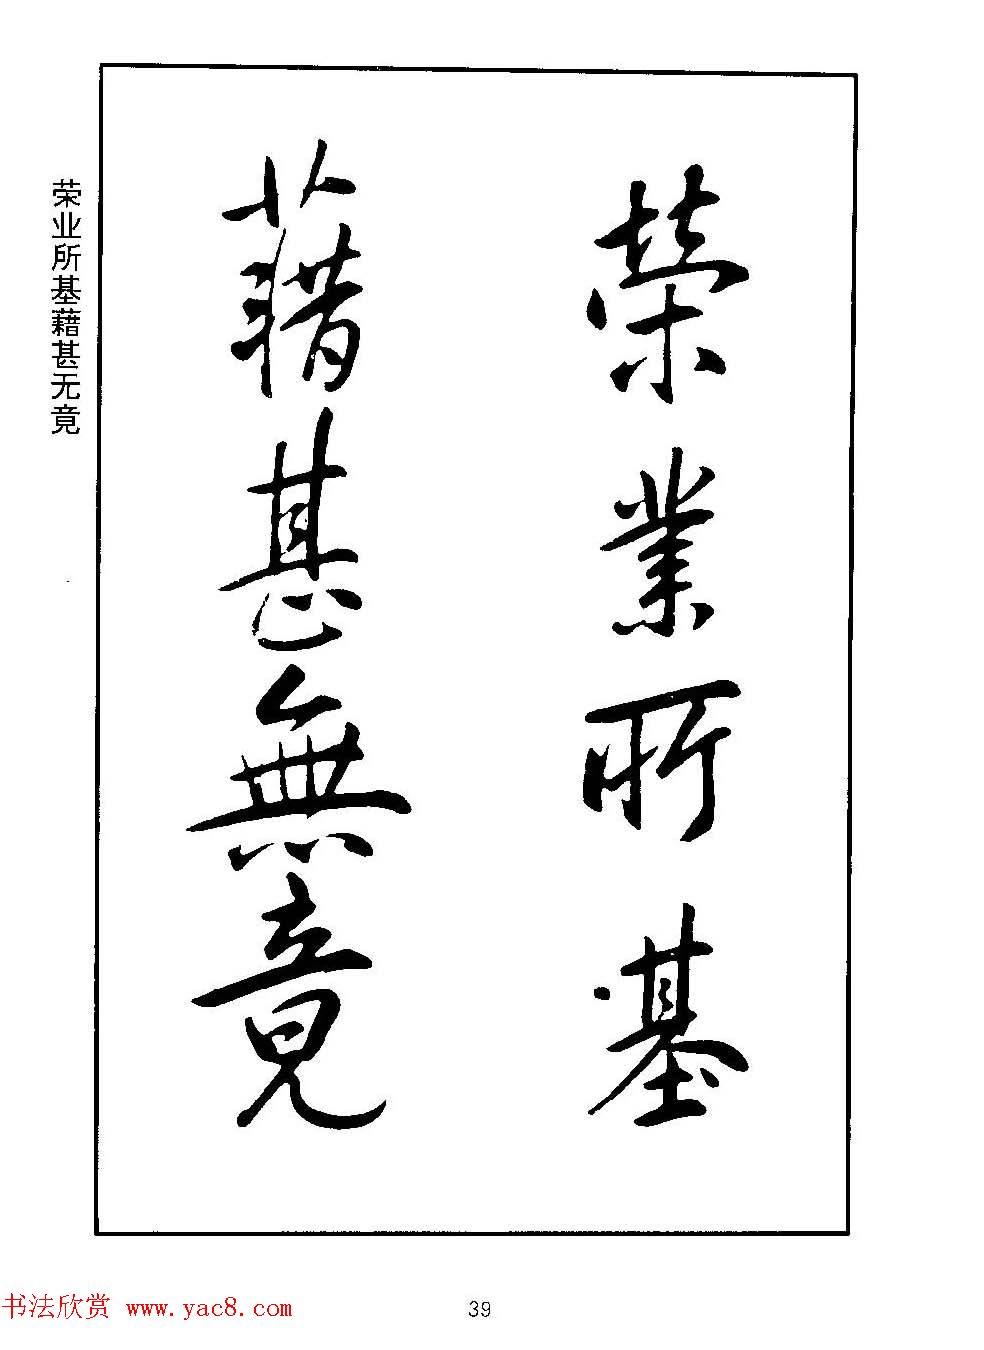 榮業所基
藉甚無竟
荣业所基藉甚无竟
书法欣赏 www.yac8.com
39